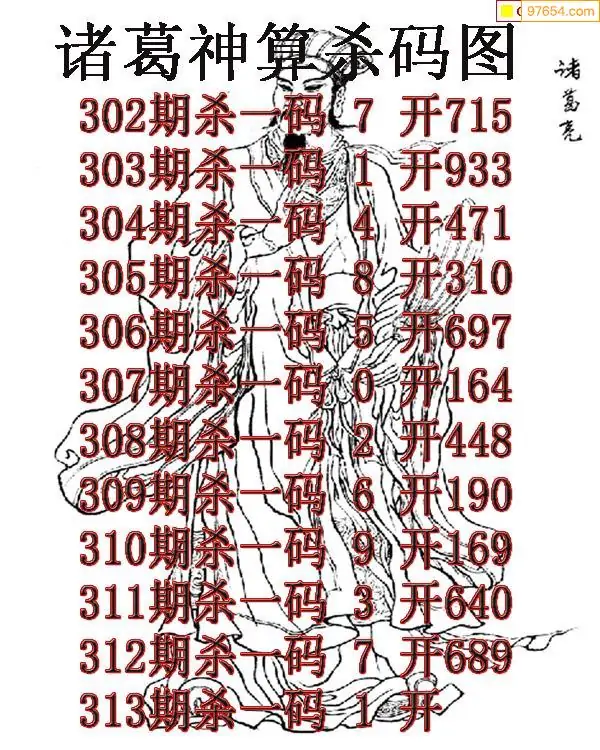 97654.com
诸葛神算杀码图
诸葛亮
302期杀一码 7 开715
303期杀一码 1 开933
304期杀一码 4 开471
305期杀一码 8 开310
306期杀一码 5 开697
307期杀一码 0 开164
308期杀一码 2 开448
309期杀一码 6 开190
310期杀一码 9 开169
311期杀一码 3 开640
312期杀一码 7 开689
313期杀一码 1 开